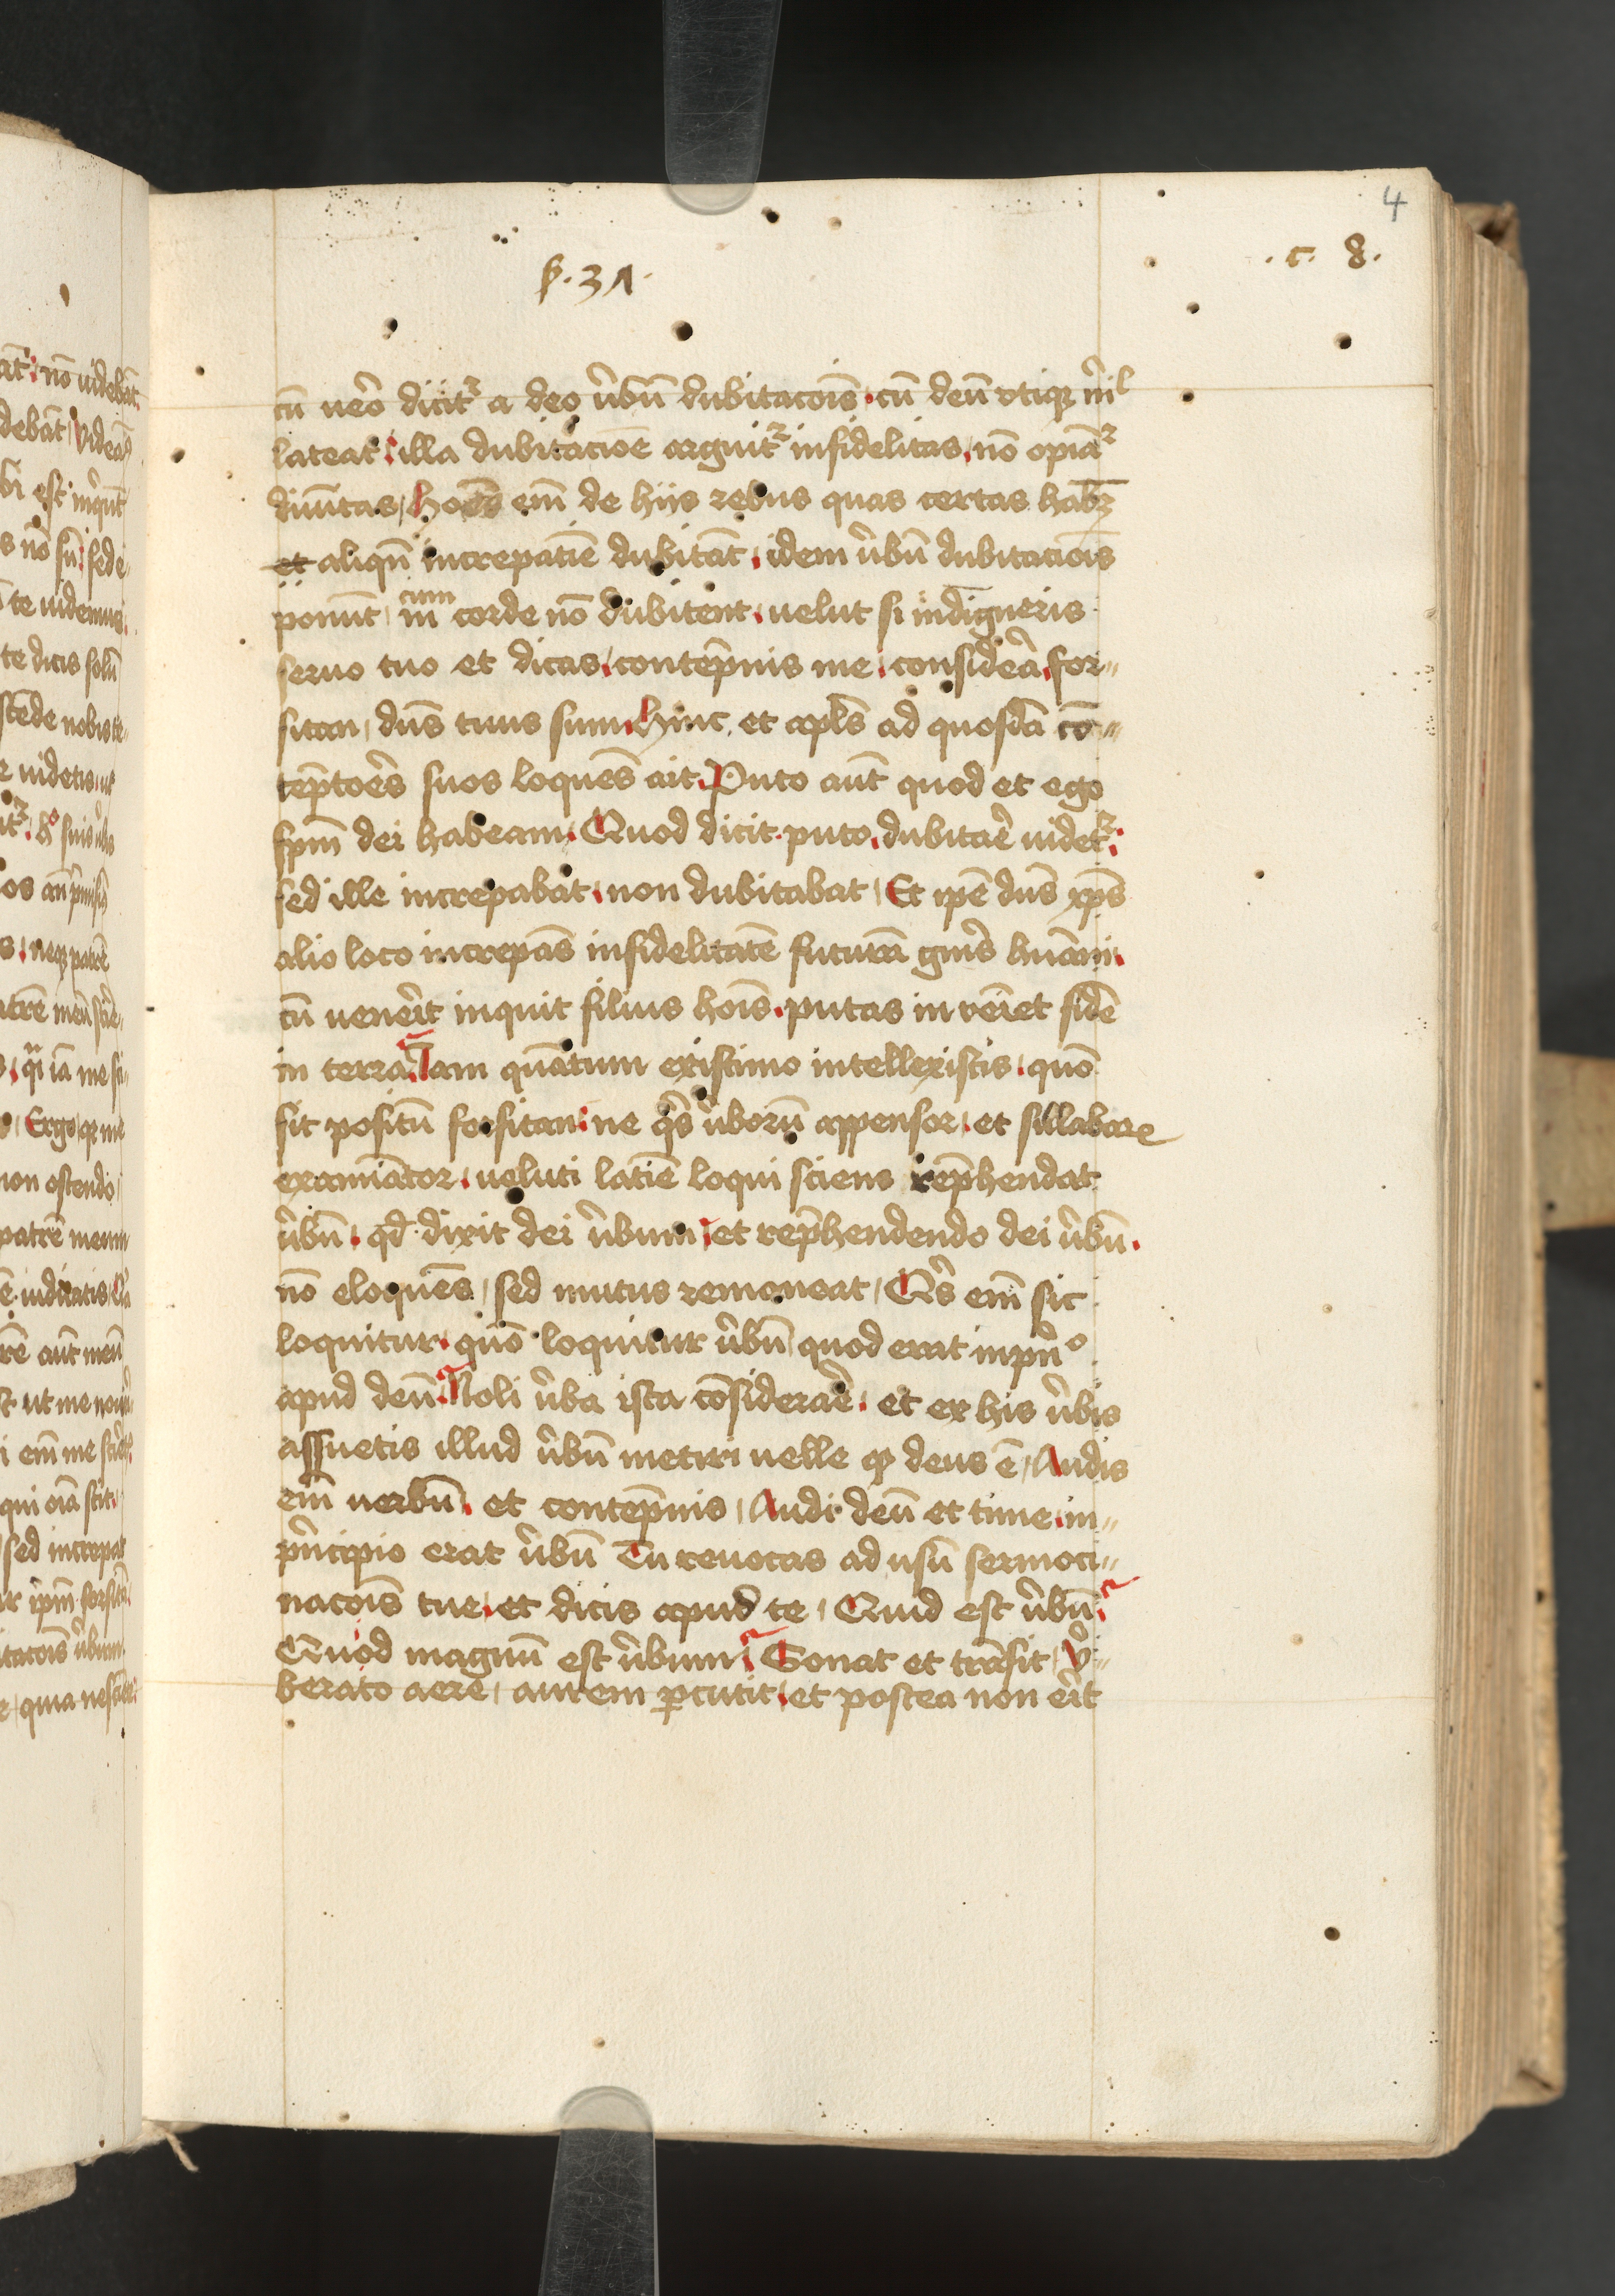 4
. c. 8.
ẜ. 31.
cū ueͬo dicitᷣ a deo v̉bū dubitacoīs. cū deū vtiqꝫ nͥil
lateat. illa dubitacione arguitᷣ infidelitas, nō opīatᷣ
diuītas, hoēs em̄ de hijs rebus quas certas habꝫ
et aliqn̄ increpatīe dubitāt, idem v̉bū dubitacoīs
ponūt, cum in corde nō dubitent, uelut si indigneris
seruo tuo et dicas, contēpnis me, considea̾, for〃
sitan, dn̄s tuus sum. Hinc, et apl̄s ad quosdā cō〃
tēptoēs suos loquēs ait. Puto aūt quod et ego
sp̄m dei habeam. Quod dicit. puto, dubitaē uidetᷣ.
sed ille increpabat, non dubitabat, Et ip̄e dn̄s xp̄s
alio loco increpās infidelitatē futurā gn̄is huāni.
cū veneri̾t inquit filius hoīs. putas inveīet fidē
in terra. Iam quātum existimo intellexistis. quō
sit positū forsitan. ne qͥs v̉borū appensor, et sillabarꝫ
examīator, ueluti latīe loqui sciens rep̄hendat
v̉bū. qd̄ dixit dei v̉bum, et rep̄hendendo dei v̉bū.
nō eloquēs, sed mutus remaneat, Qͥs em̄ sic
loquitur. quō loquitur v̉bū quod erat inpͥnͦ
apud deū. Noli v̉ba ista cōsideraē. et ex his v̉bis
assuetis illud v̉bū metiri uelle qꝫ deus ē, Audis
em̄ uerbū, et contēpnis, Audi deū et time, in〃
pͥncipio erat v̉bū Tu reuocas ad usū sermoci〃
nacoīs tue, et dicis apud te, Quid est v̉bū.
Quod magnū est v̉bum. Sonat et trāsit, v̉〃
berato aere, aurem ꝑcutit, et postea non eri̾t